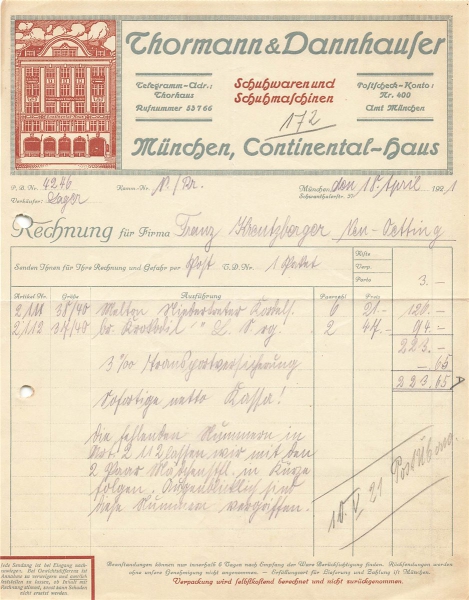 Thormann & Dannhauser
Telegramm-Adr.:
Thorhaus
Rufnummer 53766
Schuhwaren und
Schuhmaschinen
Postscheck-Konto:
Nr. 400
Amt München
172
München, Continental-Haus
P.B.Nr. 4246
Komm.-Nr.
München, den 18. April 1921
Schwanthalerstr.
Verkäufer: Lager
Rechnung für Firma Franz Kreutzberger Neu-Oetting
Senden Ihnen für Ihre Rechnung und Gefahr per Post T.D.Nr. 1 Paket
Kiste
Verp.
Porto 3.-
Artikel Nr. Größe Ausführung Paarzahl Preis
2111 38/40 Melton Niedertreter Kordels. 6 21.- 126.-
2112 37/40 br. Krokodil " L. S. 2 47.- 94.-
223.-
3‰ Transportversicherung -.65
223,65
Sofortige netto Kassa!
Die fehlenden Nummern in
Art. 2112 lassen wir mit den
2 Paar in Kürze
folgen. Augenblicklich sind
diese Nummern vergriffen.
10. V 21 Postübw.
Jede Sendung ist bei Eingang nach-
zuwiegen. Bei Gewichtsdifferenz ist
Annahme zu verweigern und amtlich
feststellen zu lassen, ob Inhalt mit
Rechnung stimmt, sonst kann Schaden
nicht ersetzt werden.
Beanstandungen können nur innerhalb 8 Tagen nach Empfang der Ware Berücksichtigung finden. Rücksendungen werden
ohne unsere Genehmigung nicht angenommen. — Erfüllungsort für Lieferung und Zahlung ist München.
Verpackung wird selbstkostend berechnet und nicht zurückgenommen.